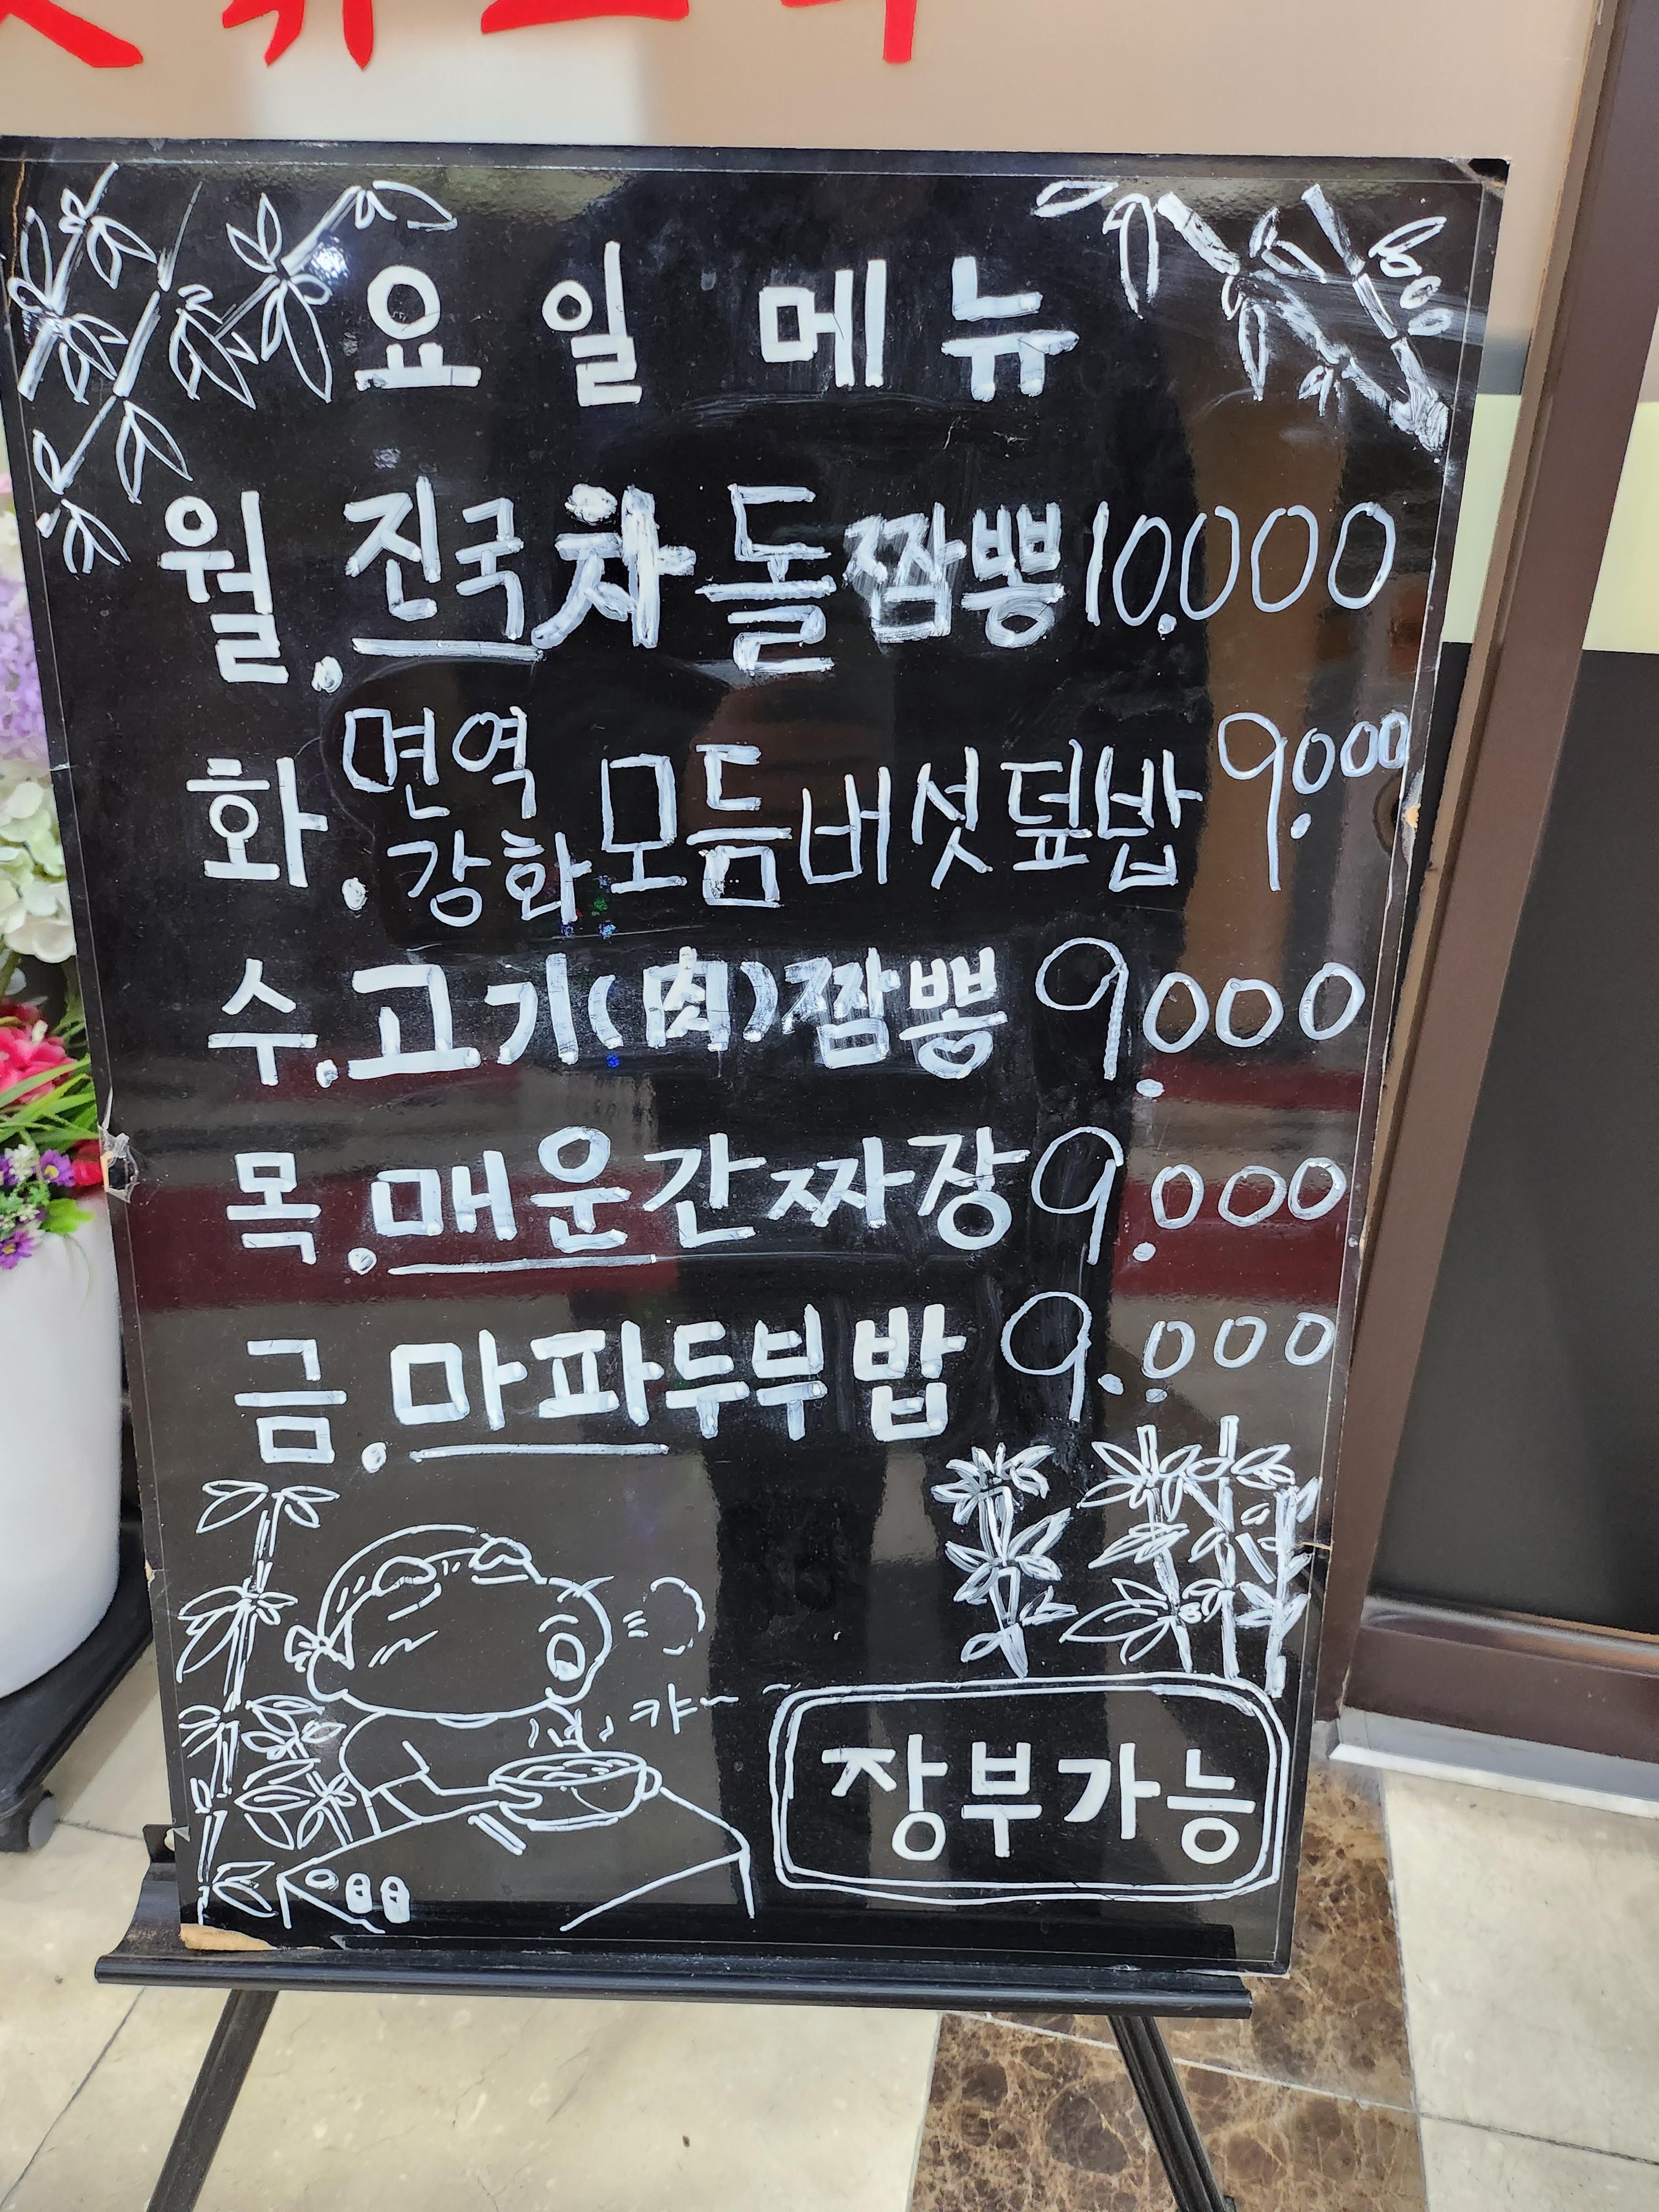 요일메뉴
월. 진국차돌짬뽕 10.000
화. 면역강화 모듬버섯덮밥 9.000
수. 고기(肉)짬뽕 9.000
목. 매운간짜장 9.000
금. 마파두부밥 9.000
캬~
장부가능